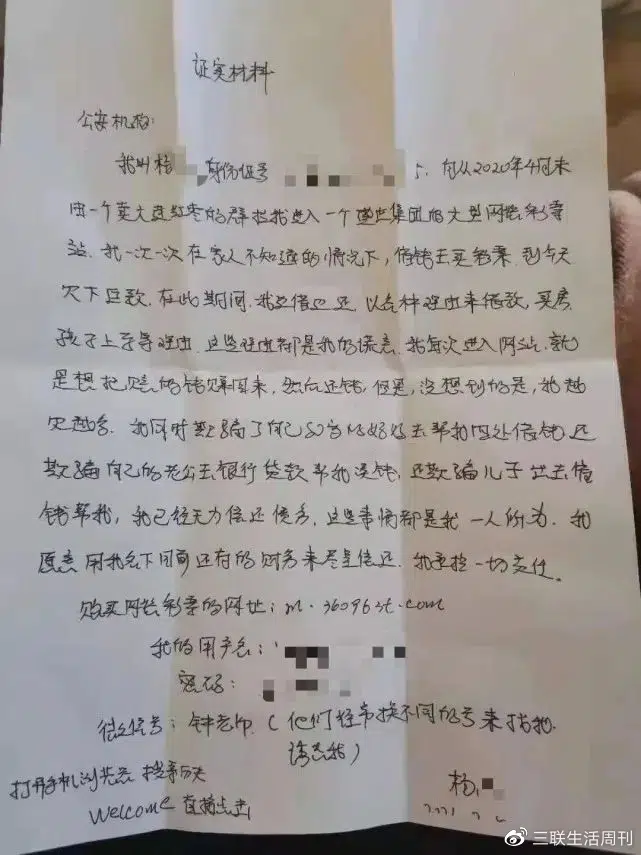 证实材料
公安机构:
我叫杨 身份证号 5. 自从2020年4月末
由一个卖大连红枣的群拉我进入一个 集团的大型网络彩票
站. 我一次一次在家人不知道的情况下, 借钱去买彩票. 到今天
欠下巨款. 在此期间. 我边借边还. 以各种理由来借款, 买房.
孩子上学等理由. 这些理由都是我的谎言. 我每次进入网站. 就
是想把 的钱 回来, 然后还钱, 但是, 没想到的是, 我越
欠越多. 我同时欺骗了自己80岁 妈妈去帮我四处借钱, 还
欺骗自己的老公去银行贷款帮我 钱, 还欺骗儿子出去借
钱帮我, 我已经无力偿还债务. 这些事情都是我一人所为. 我
愿意用我名下目前还有的财务来尽量偿还. 我承担一切责任。
购买网络彩票的网址: m.36096st.com
我的用户名:
密码:
微信号: 钟老师. (他们经常换不同的号来找我.
诱惑我)
打开手机浏览器 搜索历史
杨
Welcome 直接点击
2021.
三联生活周刊